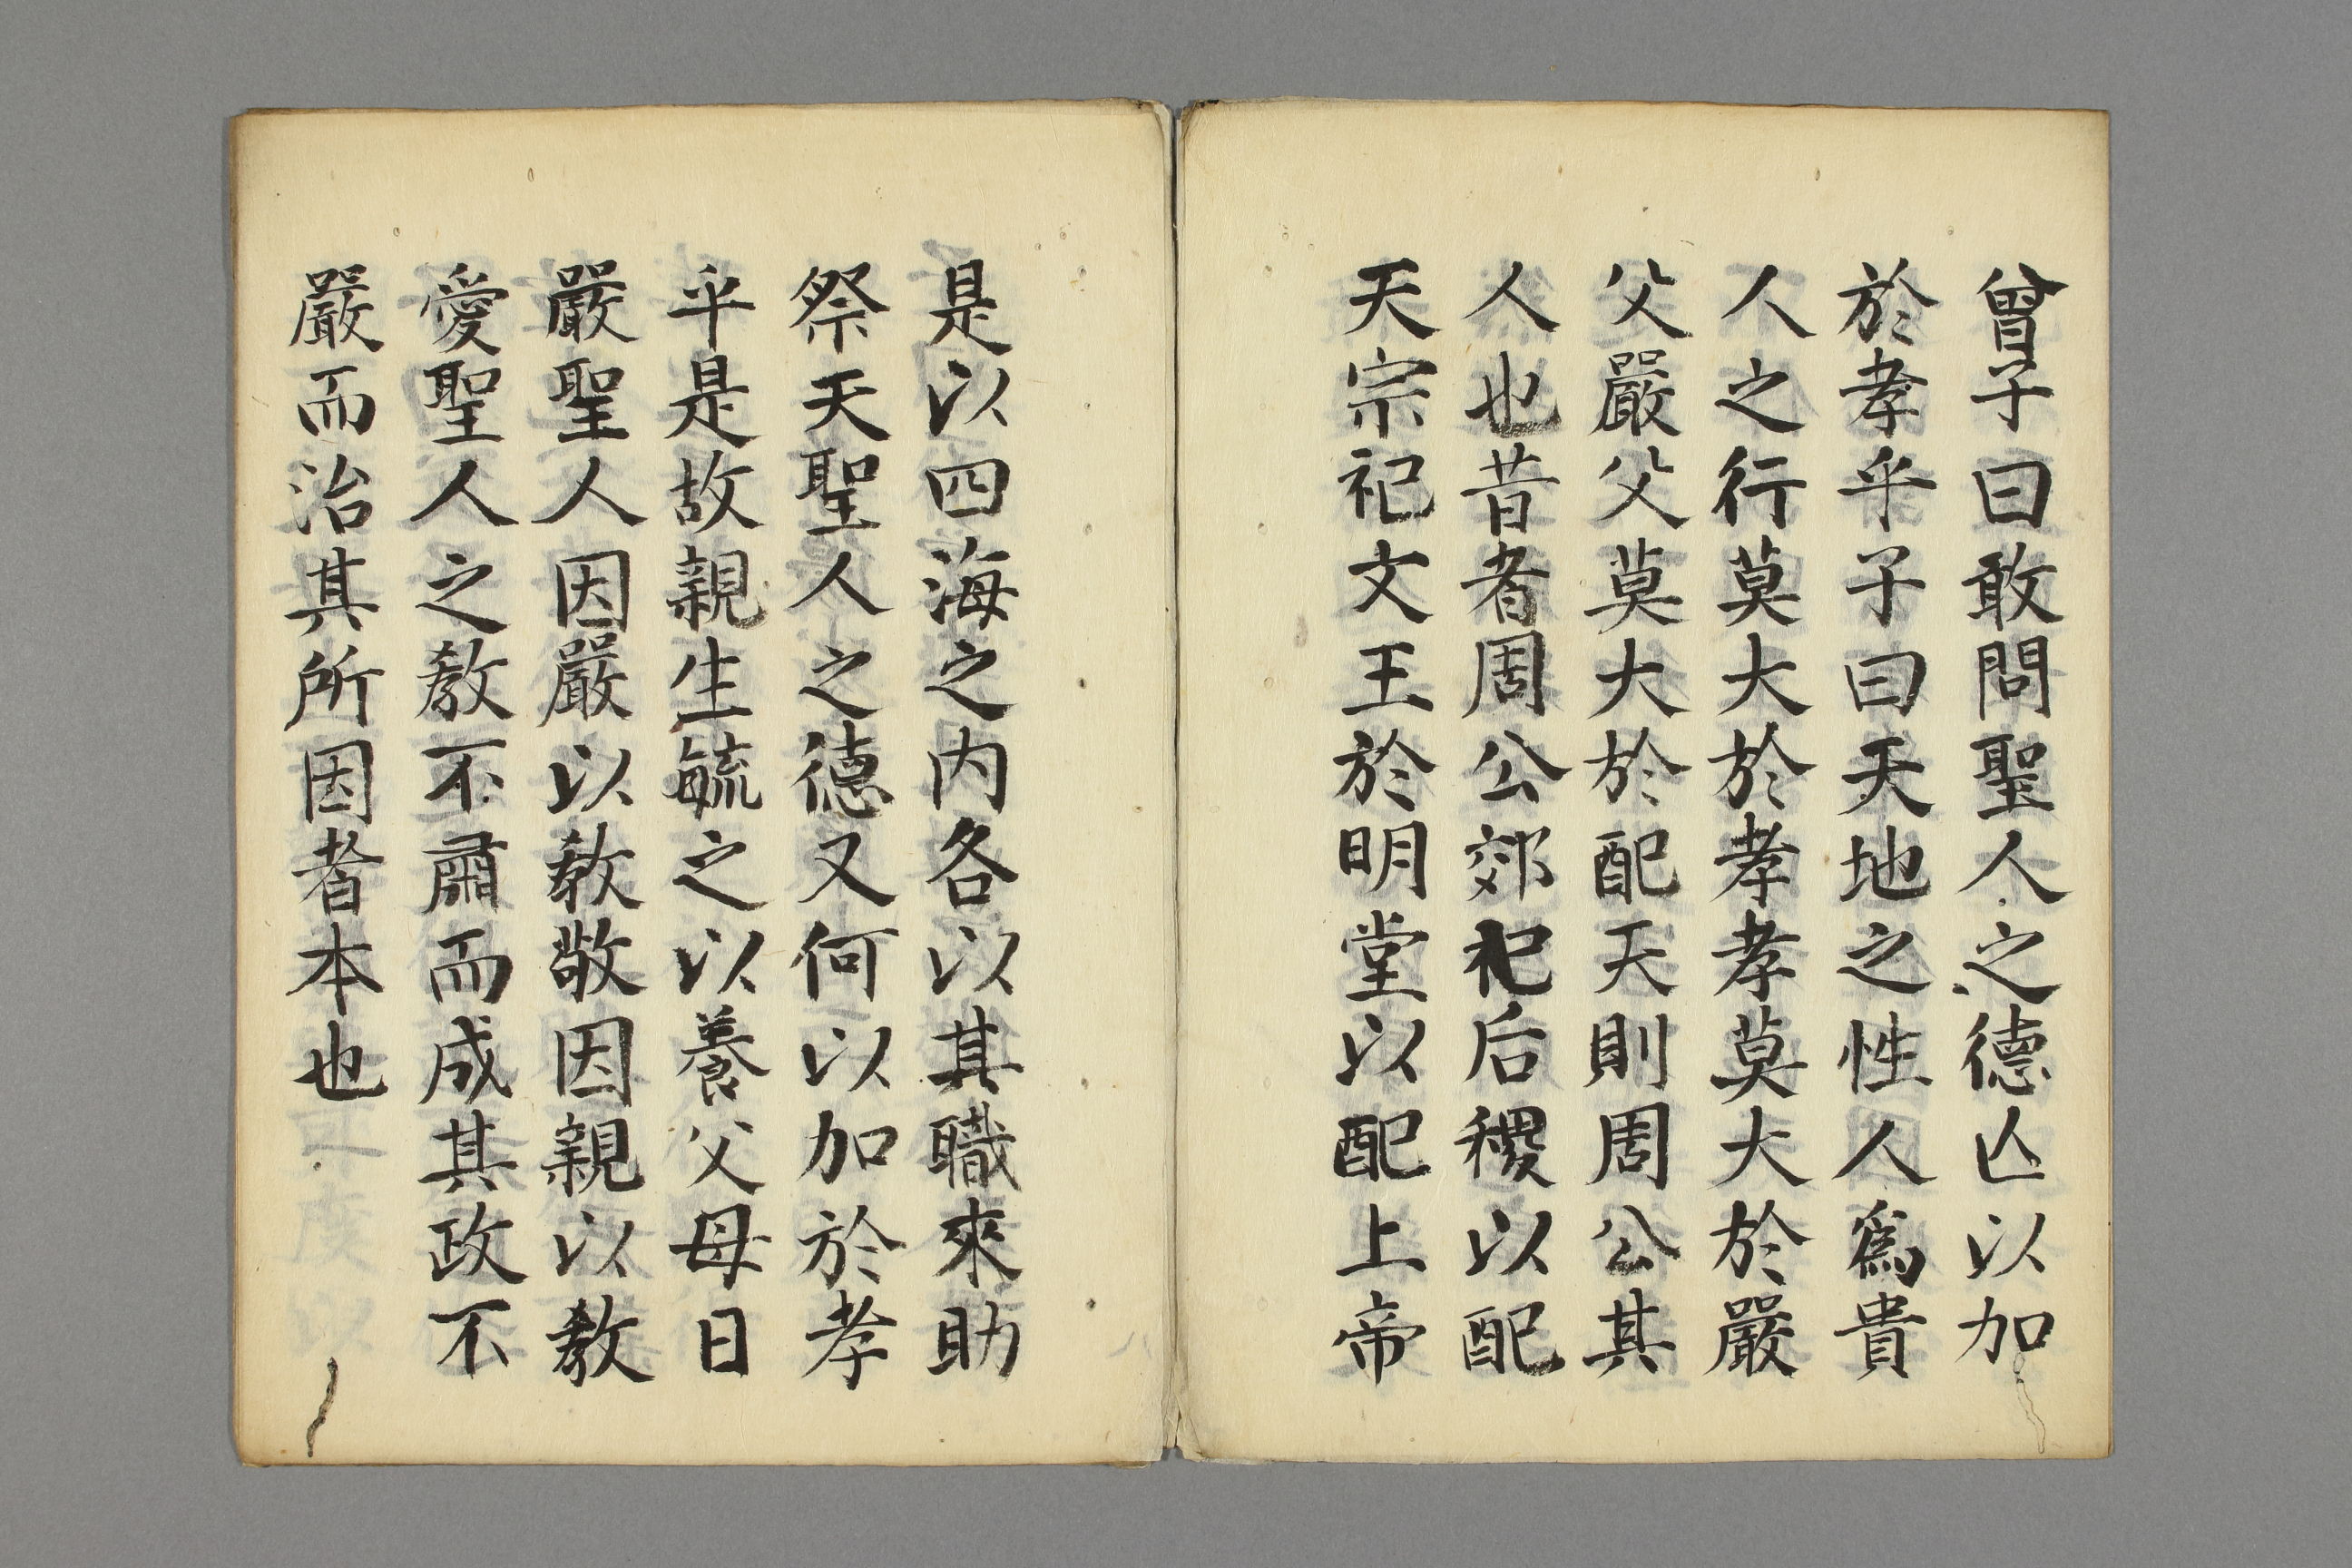 曾子曰敢問聖人之德亾以加
於孝乎子曰天地之性人爲貴
人之行莫大於孝孝莫大於嚴
父嚴父莫大於配天則周公其
人也昔者周公郊祀后稷以配
天宗祀文王於明堂以配上帝
是以四海之内各以其職來助
祭天聖人之德又何以加於孝
乎是故親生毓之以養父母日
嚴聖人因嚴以教敬因親以教
愛聖人之教不肅而成其政不
嚴而治其所因者本也